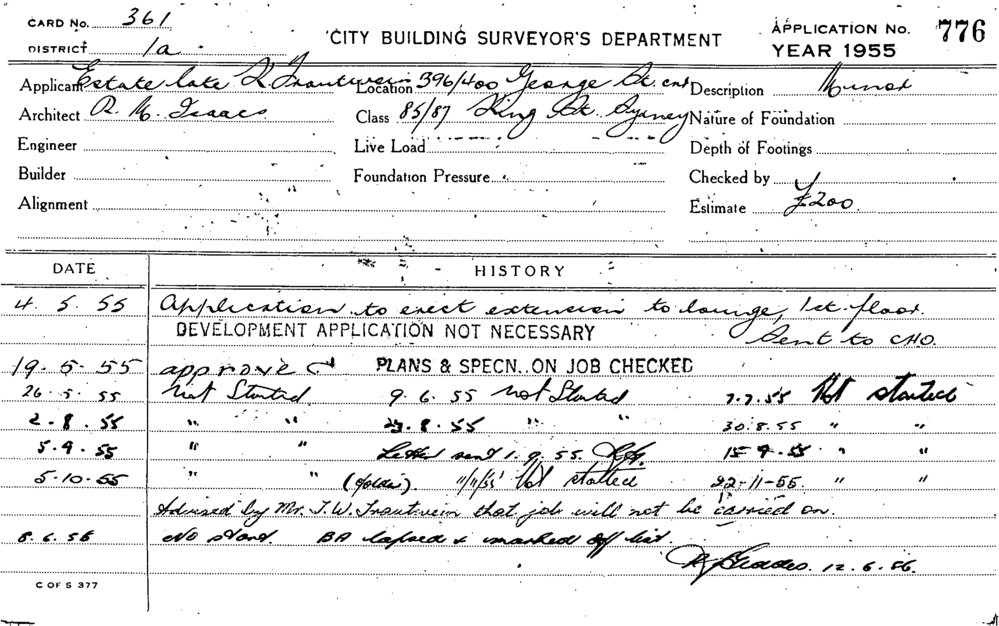 CARD No. 361
DISTRICT 1a
CITY BUILDING SURVEYOR'S DEPARTMENT
APPLICATION No. 776
YEAR 1955
Applicant Estate late R Trautwein Location 396/400 George St. cnr Description Minor
Architect R. M. Isaacs Class 85/87 King St. Sydney Nature of Foundation
Engineer Live Load Depth of Footings
Builder Foundation Pressure Checked by
Alignment Estimate £200.
DATE HISTORY
4. 5. 55 Application to erect extension to lounge, 1st. floor.
DEVELOPMENT APPLICATION NOT NECESSARY Sent to CHO.
19. 5. 55 approved PLANS & SPECN. ON JOB CHECKED
26. 5. 55 Not Started. 9. 6. 55 Not Started 7.7.55 Not started
2. 8. 55 " " 23. 8. 55 " " 30.8.55 " "
5. 9. 55 " " Letter sent 1. 9. 55. 15 9.55. " "
5.10.55 " " ( ) 11/11/55 Not started 22-11-55. " "
Advised by Mr. T.W. Trautwein that job will not be carried on.
8. 6. 56 No start. BA lapsed & marked off list.
12.6.56.
C OF S 377